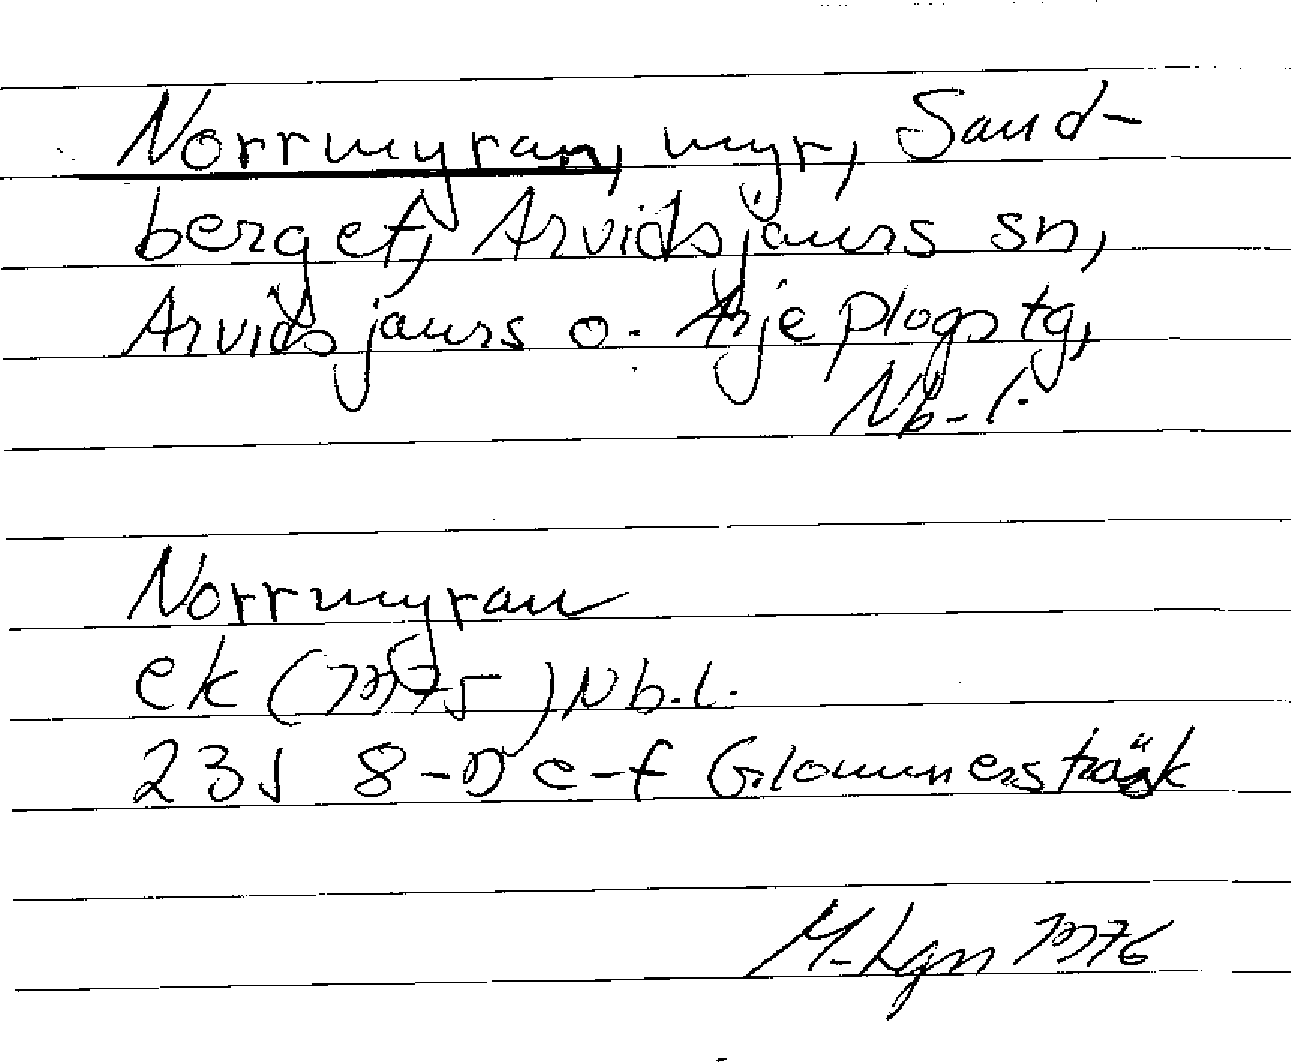 Norrmyran, myr, Sand-
berget, Arvidsjaurs sn,
Arvidsjaurs o. Arjeplogs tg,
Nb. l.
Norrmyran
ek (1975) Nb. l.
23J 8-9 e-f Glommersträsk
M. Lgn 1976